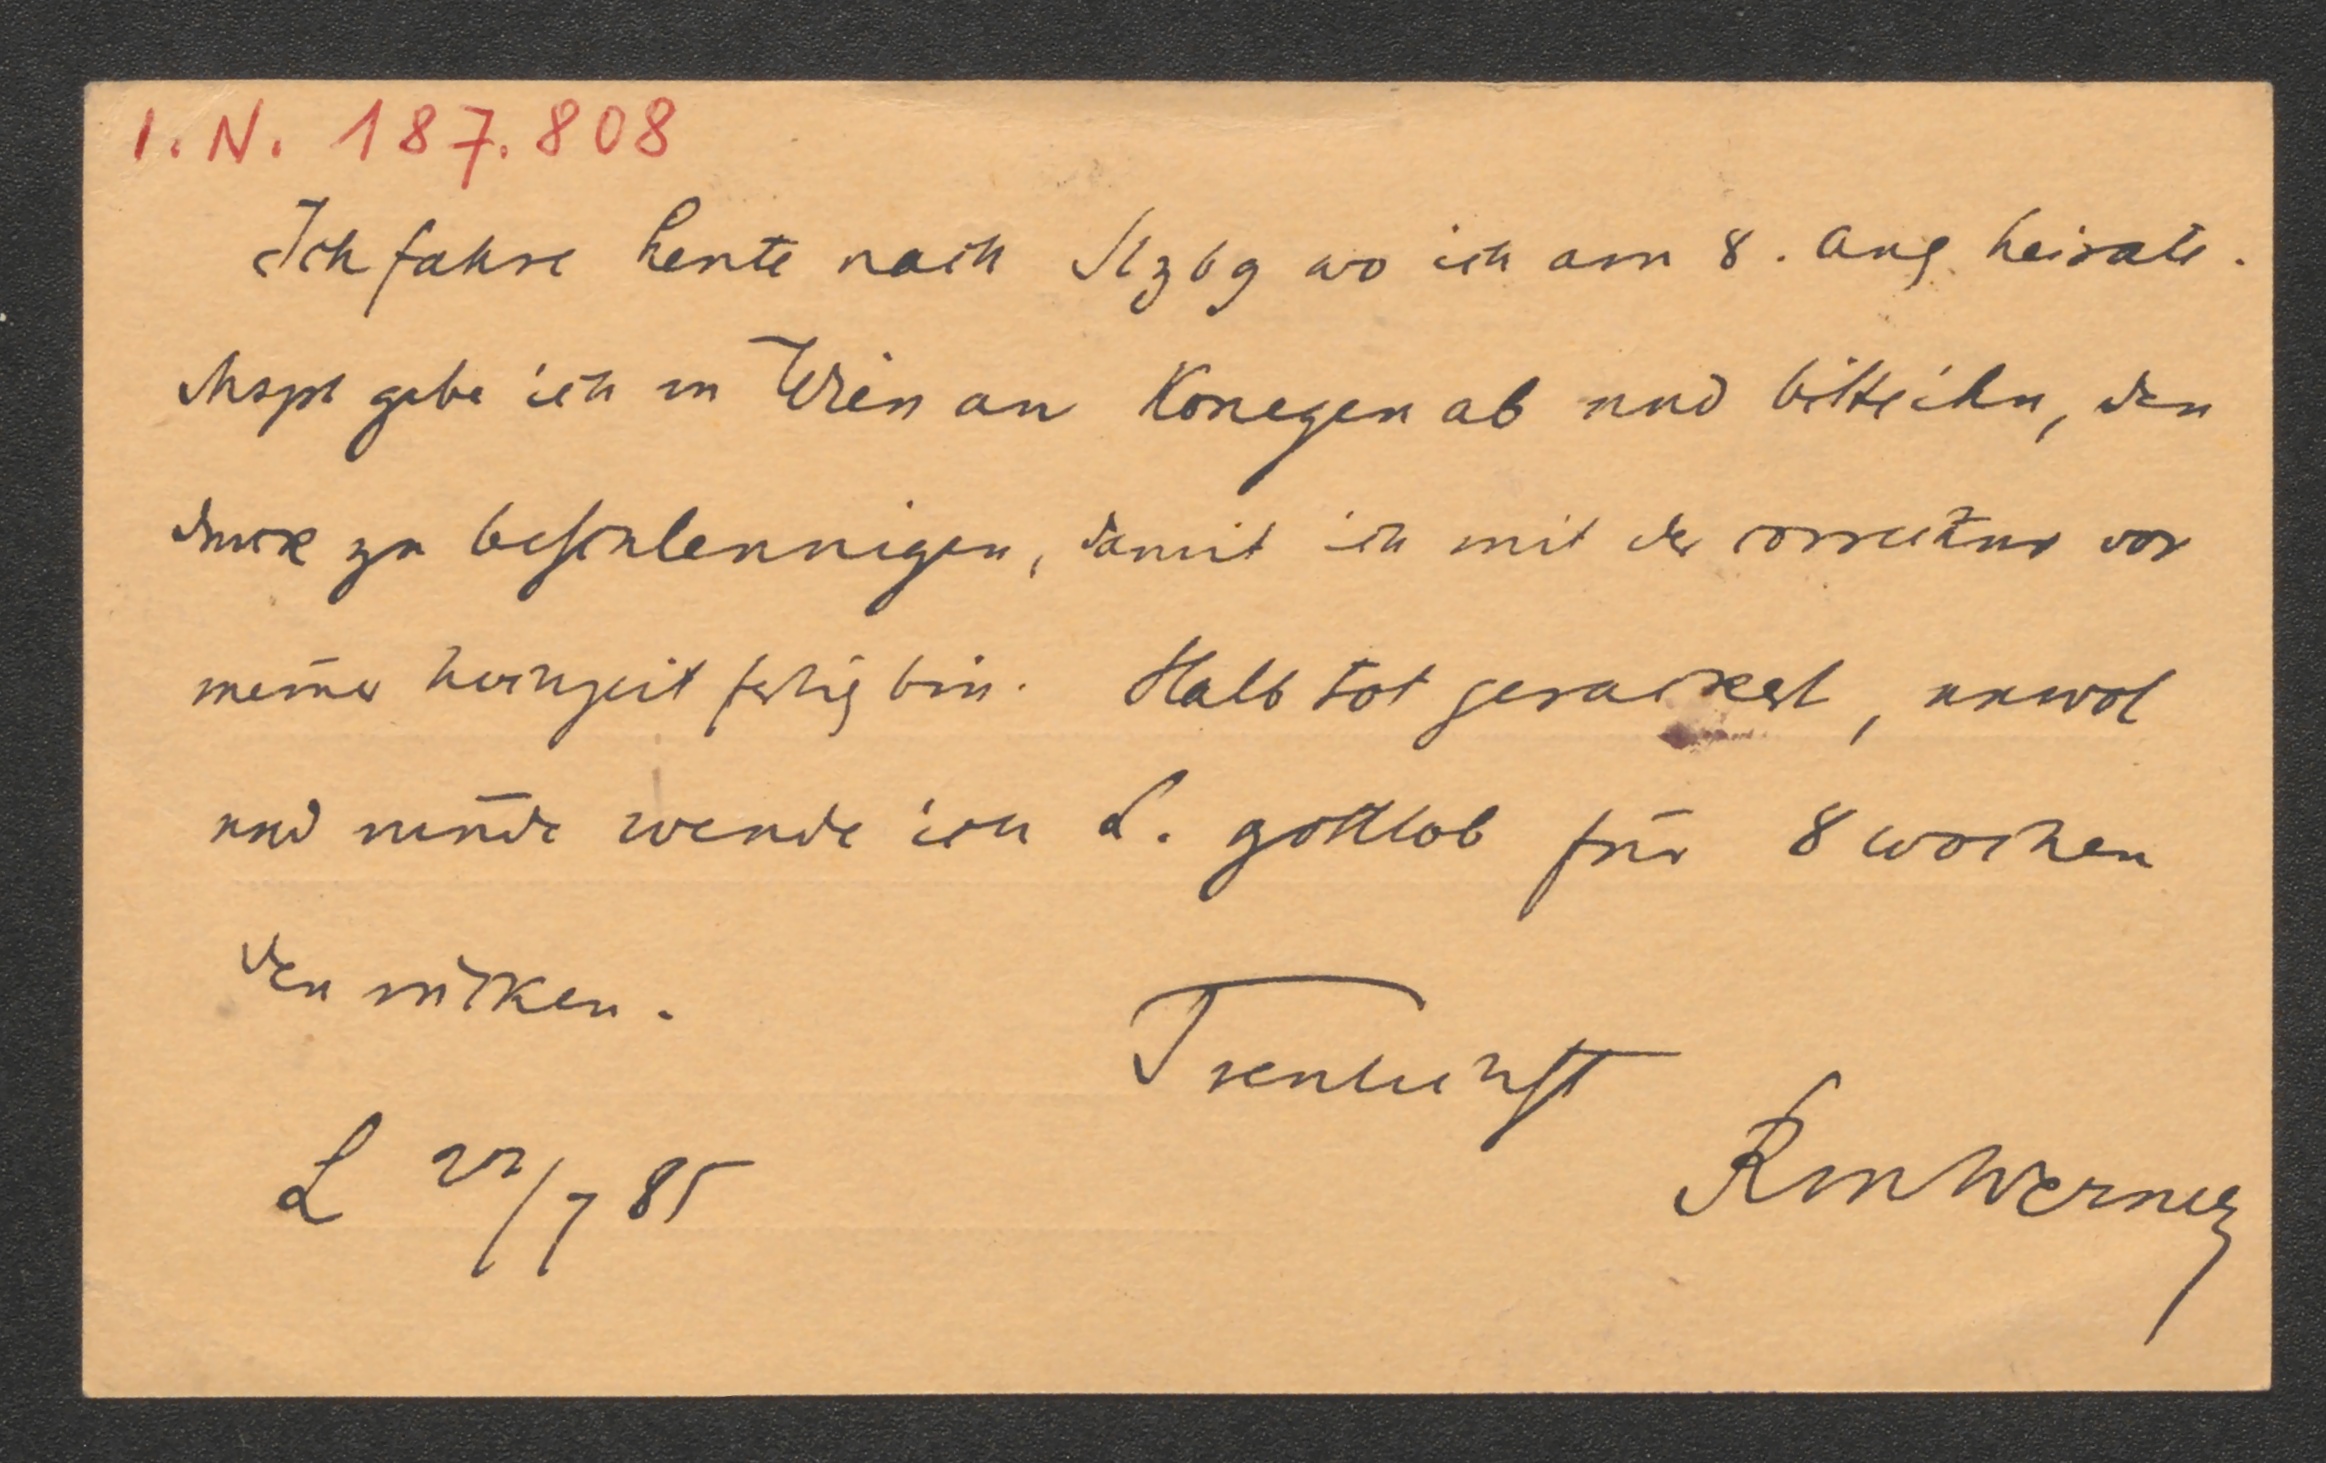 I. N. 187.808
Ich fahre heute nach Slzbg wo ich am 8. Aug. heirate.
Mspt gebe ich in Wien an Konegen ab und bitte ihn, den
druck zu beschlennigen, damit ich mit der correctur vor
meiner hochzeit fertig bin. Halb tot gerackert, unwol
und müde wende ich L. gottlob für 8 wochen
den rücken.
Treulichst
L 22/7 85
RMWerner